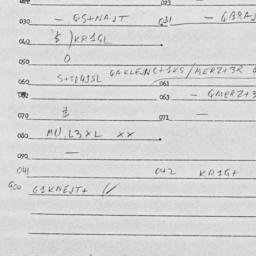 023
030 - QS+NAJT 031 - GBRAJ
040 $ /KR1GL
050 O
060 S+TP4JSL GAKLEJNS+1KS/MERZ+3R
061
062 063 - GMERZ+3
070 $ 071 -
080 MU,L3XL XX
090 -
041 042 KR1G+
900 G1KNEJT+ //